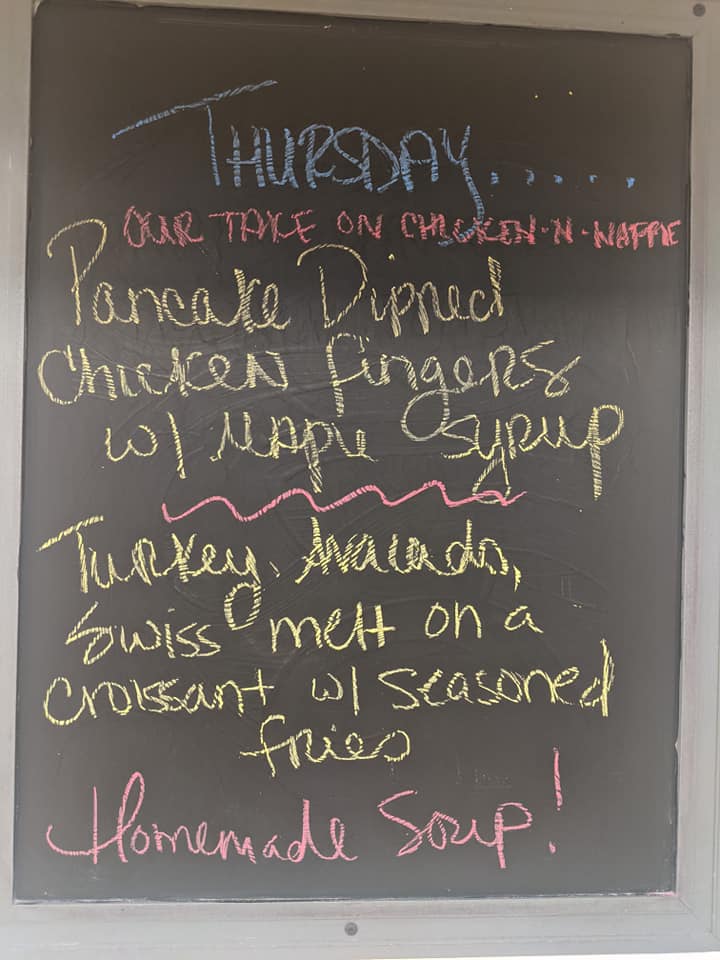 THURSDAY......
OUR TAKE ON CHICKEN-N-WAFFLE
Pancake Dipped
Chicken fingers
w/ Maple Syrup
Turkey, Avacado,
Swiss melt on a
Croissant w/ seasoned
fries
Homemade Soup!